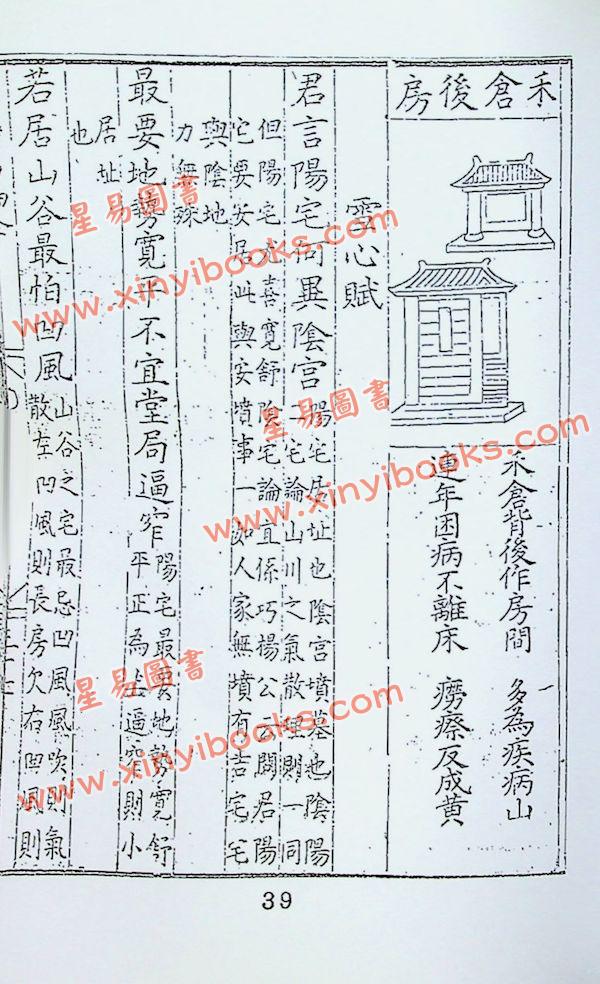 禾倉後房
禾倉背後作房間 多為疾病山
連年困病不離床 癆瘵反成黃
雪心賦
君言陽宅何異陰宮 陽宅居址也陰宮墳墓也陰陽
二宅論山川之氣散理則一同
但陽宅尤喜寬舒陰宅論宜係巧楊公云開居陽
宅要安居此與安墳事一如人家無墳有吉宅宅
與陰地
力無殊
最要地勢寬平不宜堂局逼窄 陽宅最要地勢寬舒
平正為上逼窄則小
居址
也
若居山谷最怕凹風 山谷之宅最忌凹風風吹則氣
散左凹風則長房欠右凹風則
39
星易圖書
www.xinyibooks.com
星易圖書
www.xinyibooks.com
星易圖書
www.xinyibooks.com